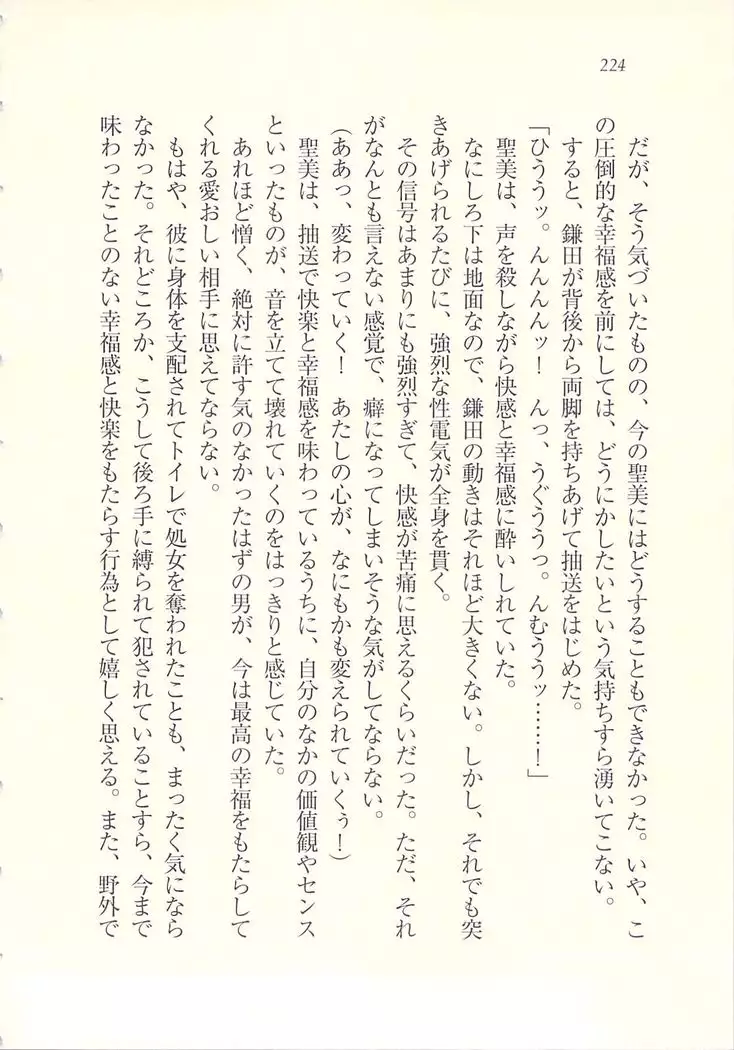 224
だが、そう気づいたものの、今の聖美にはどうすることもできなかった。いや、こ
の圧倒的な幸福感を前にしては、どうにかしたいという気持ちすら湧いてこない。
すると、鎌田が背後から両脚を持ちあげて抽送をはじめた。
「ひううッ。んんんんッ！　んっ、うぐううっ。んむううッ……！」
聖美は、声を殺しながら快感と幸福感に酔いしれていた。
なにしろ下は地面なので、鎌田の動きはそれほど大きくない。しかし、それでも突
きあげられるたびに、強烈な性電気が全身を貫く。
その信号はあまりにも強烈すぎて、快感が苦痛に思えるくらいだった。ただ、それ
がなんとも言えない感覚で、癖になってしまいそうな気がしてならない。
（ああっ、変わっていく！　あたしの心が、なにもかも変えられていくぅ！）
聖美は、抽送で快楽と幸福感を味わっているうちに、自分のなかの価値観やセンス
といったものが、音を立てて壊れていくのをはっきりと感じていた。
あれほど憎く、絶対に許す気のなかったはずの男が、今は最高の幸福をもたらして
くれる愛おしい相手に思えてならない。
もはや、彼に身体を支配されてトイレで処女を奪われたことも、まったく気になら
なかった。それどころか、こうして後ろ手に縛られて犯されていることすら、今まで
味わったことのない幸福感と快楽をもたらす行為として嬉しく思える。また、野外で